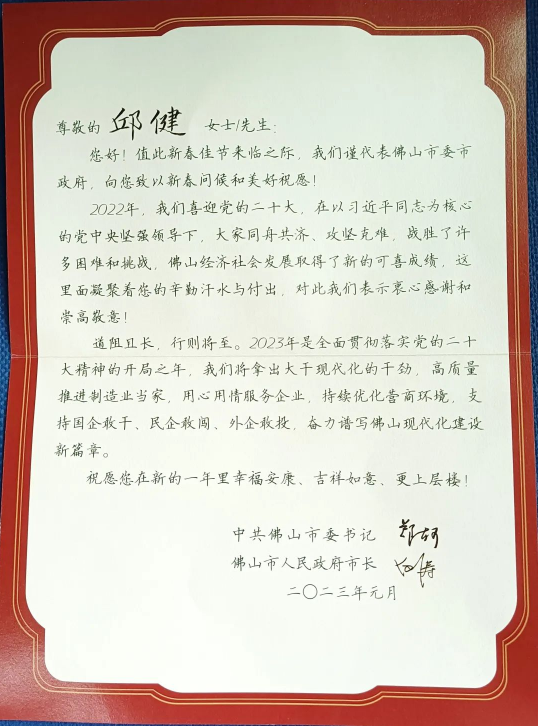 尊敬的 邱健 女士/先生：
您好！值此新春佳节来临之际，我们谨代表佛山市委市
政府，向您致以新春问候和美好祝愿！
2022年，我们喜迎党的二十大，在以习近平同志为核心
的党中央坚强领导下，大家同舟共济、攻坚克难，战胜了许
多困难和挑战，佛山经济社会发展取得了新的可喜成绩，这
里面凝聚着您的辛勤汗水与付出，对此我们表示衷心感谢和
崇高敬意！
道阻且长，行则将至。2023年是全面贯彻落实党的二十
大精神的开局之年，我们将拿出大干现代化的干劲，高质量
推进制造业当家，用心用情服务企业，持续优化营商环境，支
持国企敢干、民企敢闯、外企敢投，奋力谱写佛山现代化建设
新篇章。
祝愿您在新的一年里幸福安康、吉祥如意、更上层楼！
中共佛山市委书记 郑轲
佛山市人民政府市长 白涛
二〇二三年元月